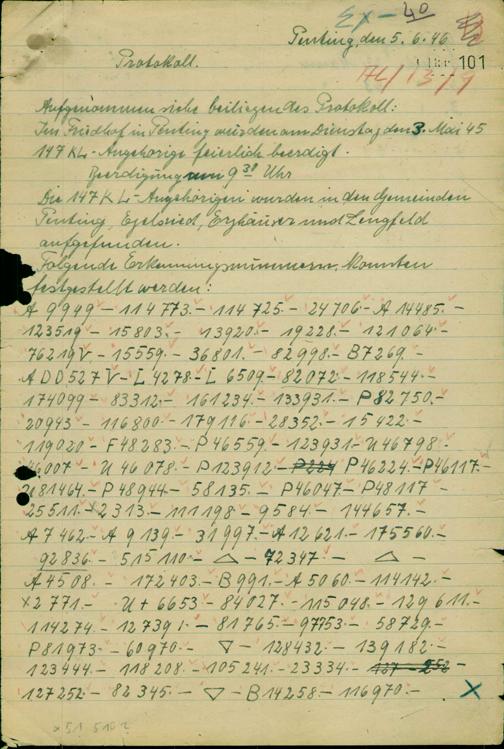 EX-40
Penting, den 5. 6. 46.
101
AL/13/9
Protokoll.
Aufgenommen siehe beiliegendes Protokoll:
Im Friedhof in Penting wurden am Dienstag den 3. Mai 45
147 KL-Angehörige feierlich beerdigt.
Beerdigung um 9 30 Uhr
Die 147 KL-Angehörigen wurden in den Gemeinden
Penting, Egelsried, Erzhäuser und Lengfeld
aufgefunden.
Folgende Erkennungsnummern konnten
festgestellt werden:
A 9949 - 114773. - 114725. - 24706 - A 14485. -
123519 - 15803. - 13920. - 19228. - 121064. -
76219 V - 15559. - 36801. - 82998. - B7269. -
A DD 527 V - L 4278. - L 6509. - 82072. - 118544. -
174099 - 83312. - 161234. - 133931. - P 82750. -
20943 - 116800. - 179116. - 28352. - 15422. -
119020 - F48283. - P46559. - 123931. - U46798. -
46007 - U 46078. - P123912. - P224 P46224. - P46117. -
U81464. - P48944. - 58135. - P46047 - P48117 -
25511. - x2313. - 111198 - 9584. - 144657. -
A 7462. - A 9139. - 31997. - A12621. - 175560. -
92836. - 515110. - △ - 72347. - △ -
A4508. - 172403. - B991. - A5060. - 114142. -
x2771. - U+ 6653 - 84027. - 115048. - 129611. -
114274. - 127391. - 81765. - 97753. - 58729. -
P81973. - 60970. - ▽ - 128432. - 139182. -
123444. - 118208. - 105241. - 23334. - 127-252 -
127252 - 82345. - ▽ - B14258. - 116970. - X